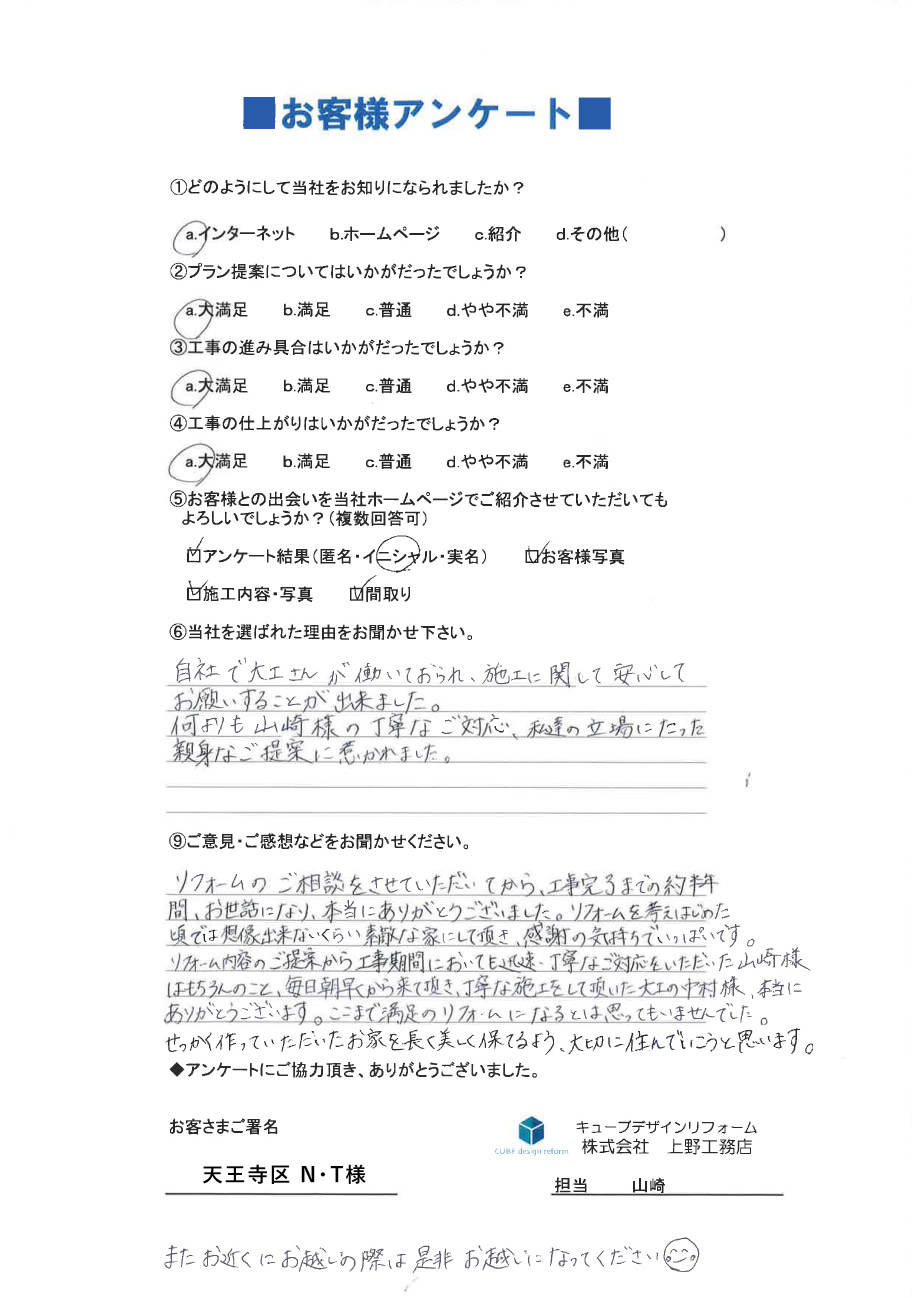 ■お客様アンケート■
①どのようにして当社をお知りになられましたか？
a.インターネット b.ホームページ c.紹介 d.その他（ ）
②プラン提案についてはいかがだったでしょうか？
a.大満足 b.満足 c.普通 d.やや不満 e.不満
③工事の進み具合はいかがだったでしょうか？
a.大満足 b.満足 c.普通 d.やや不満 e.不満
④工事の仕上がりはいかがだったでしょうか？
a.大満足 b.満足 c.普通 d.やや不満 e.不満
⑤お客様との出会いを当社ホームページでご紹介させていただいても
よろしいでしょうか？（複数回答可）
☑アンケート結果（匿名・イニシャル・実名） ☑お客様写真
☑施工内容・写真 ☑間取り
⑥当社を選ばれた理由をお聞かせ下さい。
自社で大工さんが働いておられ、施工に関して安心して
お願いすることが出来ました。
何よりも山崎様の丁寧なご対応、私達の立場にたった
親身なご提案に惹かれました。
⑨ご意見・ご感想などをお聞かせください。
リフォームのご相談をさせていただいてから、工事完了までの約半年
間、お世話になり、本当にありがとうございました。リフォームを考えはじめた
頃では想像出来ないくらい素敵な家にして頂き、感謝の気持ちでいっぱいです。
リフォーム内容のご提案から工事期間においても迅速・丁寧なご対応をいただいた山崎様
はもちろんのこと、毎日朝早くから来て頂き、丁寧な施工をして頂いた大工の中村様、本当に
ありがとうございます。ここまで満足のリフォームになるとは思ってもいませんでした。
せっかく作っていただいたお家を長く美しく保てるよう、大切に住んでいこうと思います。
◆アンケートにご協力頂き、ありがとうございました。
お客さまご署名
天王寺区 N・T様
CUBE design reform
キューブデザインリフォーム
株式会社 上野工務店
担当 山崎
またお近くにお越しの際は是非お越しになってください